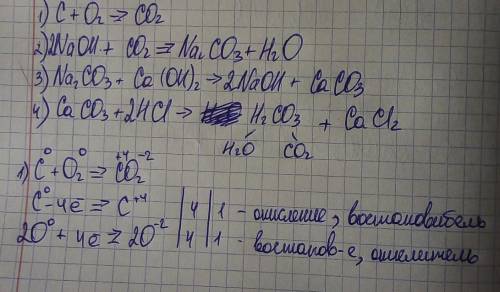 1) C + O₂ ⇒ CO₂
2) 2NaOH + CO₂ ⇒ Na₂CO₃ + H₂O
3) Na₂CO₃ + Ca(OH)₂ → 2NaOH + CaCO₃
4) CaCO₃ + 2HCl → H₂CO₃ + CaCl₂
H₂O CO₂
1) C⁰ + O₂⁰ ⇒ C⁺⁴O₂⁻²
C⁰ - 4e ⇒ C⁺⁴ | 4 | 1 - окисление, востановитель
2O⁰ + 4e ⇒ 2O⁻² | 4 | 1 - востанов-е, окислитель